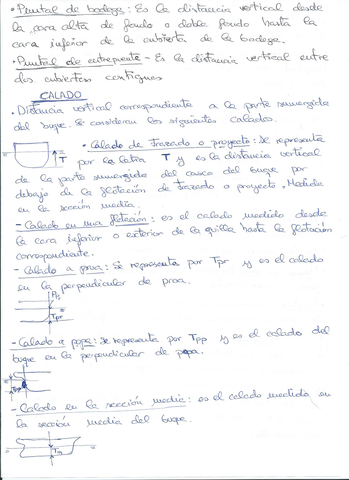 • Puntal de bodega: Es la distancia vertical desde
la cara alta de fondo o doble fondo hasta la
cara inferior de la cubierta de la bodega.
• Puntal de entrepuente - Es la distancia vertical entre
dos cubiertas contiguas
CALADO
• Distancia vertical correspondiente a la parte sumergida
del buque. Se consideran los siguientes calados.
• Calado de trazado o proyecto: Se representa
por la letra T y es la distancia vertical
T
de la parte sumergida del casco del buque por
debajo de la flotación de trazado o proyecto. Medida
en la sección media.
- Calado en una flotación: es el calado medido desde
la cara inferior o exterior de la quilla hasta la flotación
correspondiente.
- Calado a proa: Se representa por Tpr y es el calado
en la perpendicular de proa.
Tpr
- Calado a popa: Se representa por Tpp y es el calado del
buque en la perpendicular de popa.
- Calado en la sección media: es el calado medido en
la sección media del buque.